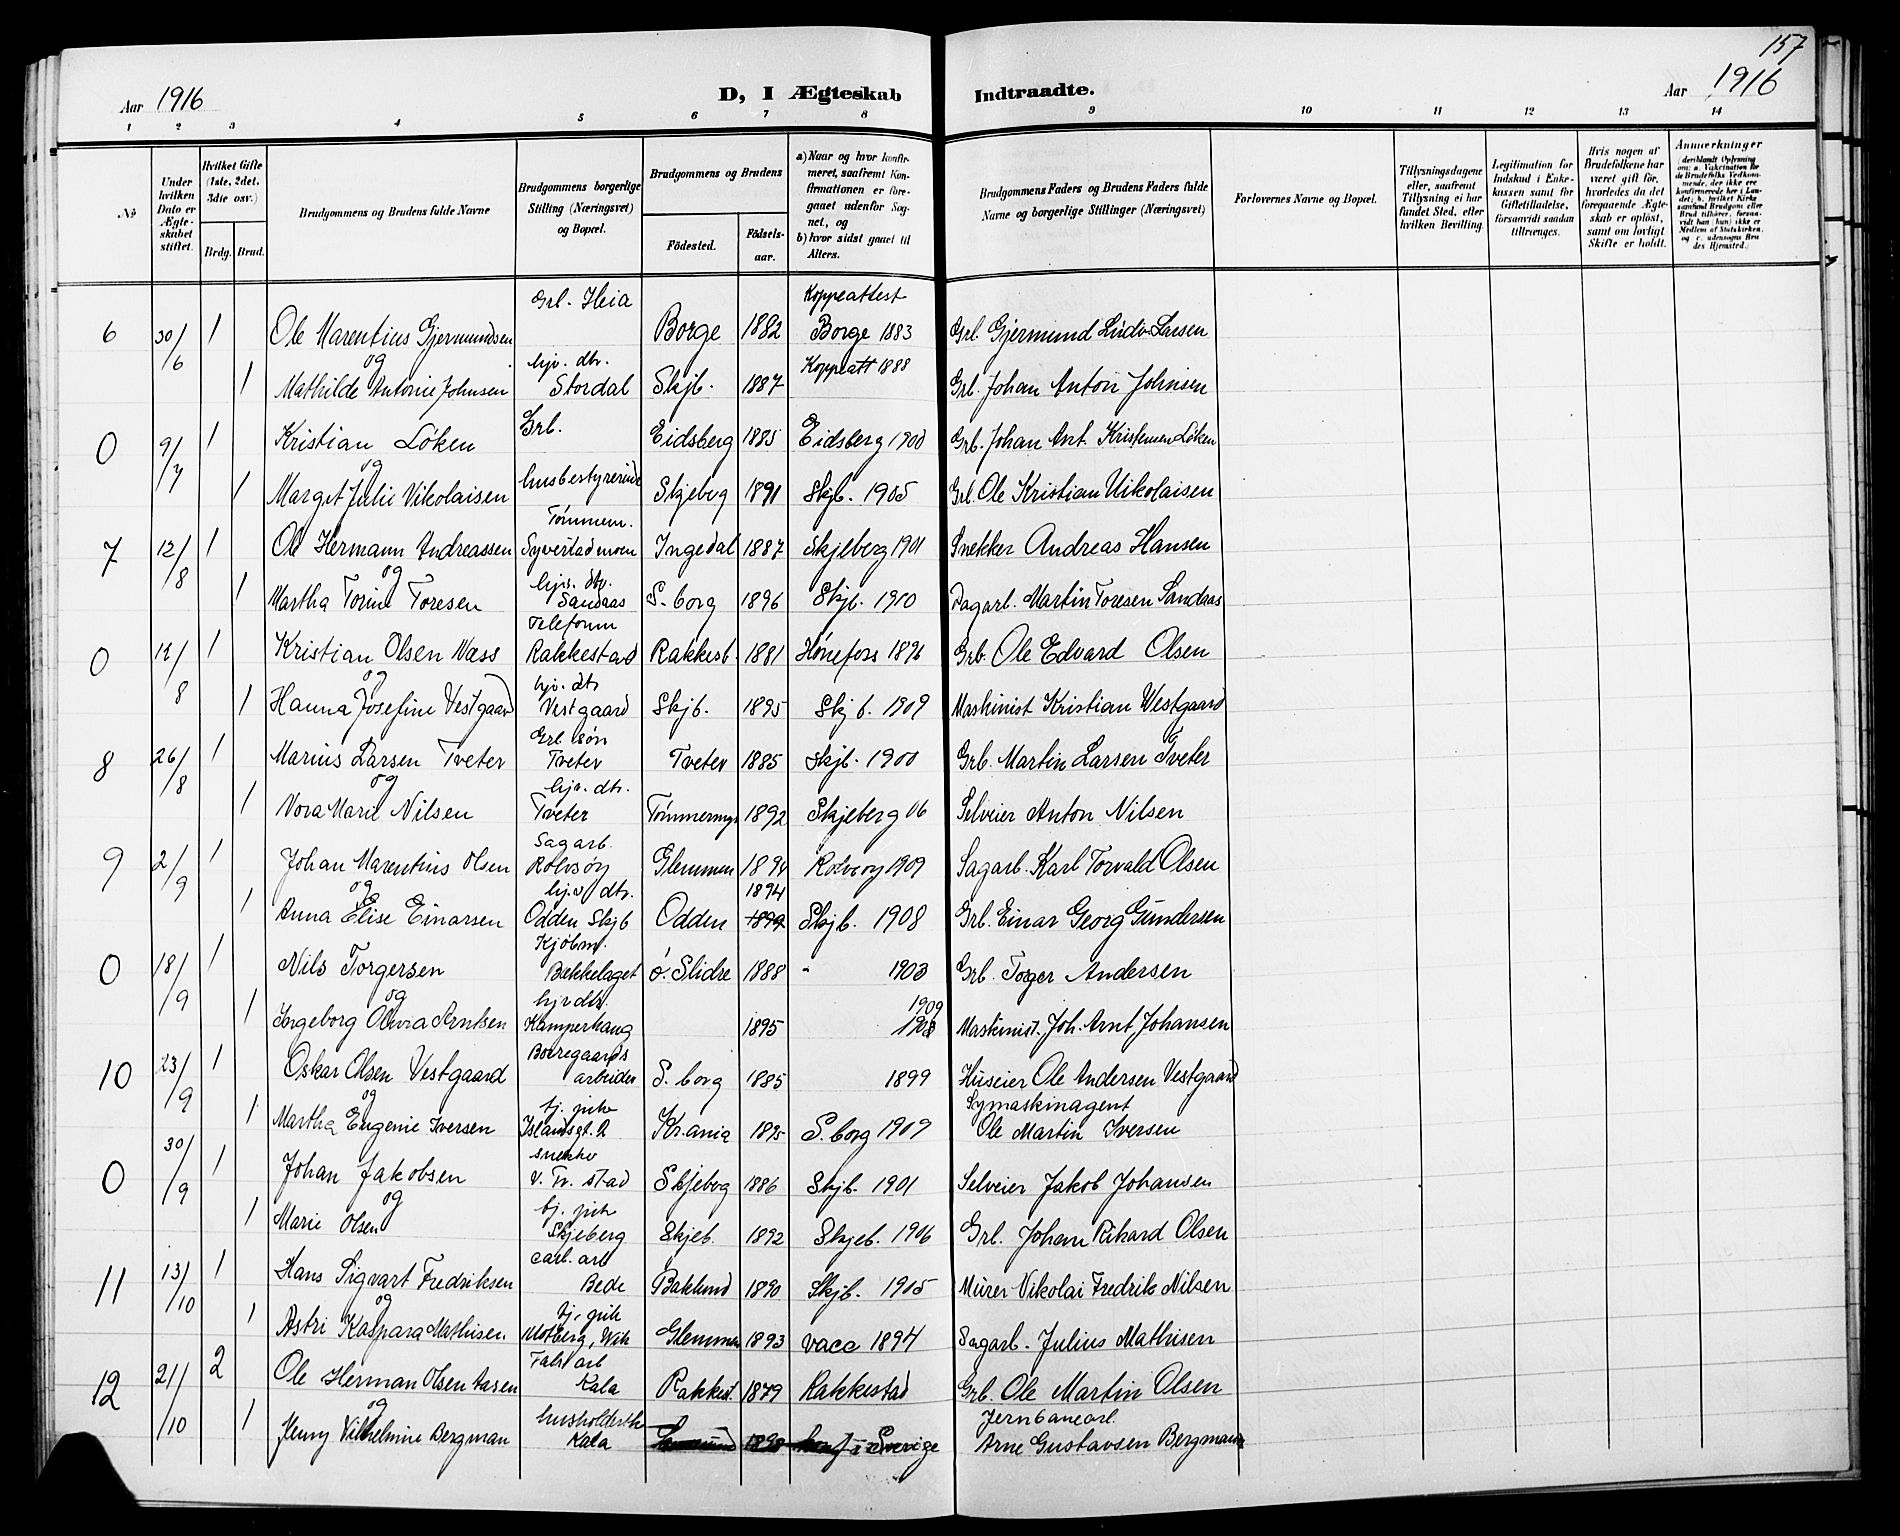 157
Aar 1916
D, I Ægteskab Indtraadte.
Aar 1916
1 2 3 4 5 6 7 8 9 10 11 12 13 14
№
Under hvilken Dato er Ægteskabet stiftet.
Hvilket Gifte (1ste, 2det, 3die osv.)
Brdg. Brud.
Brudgommens og Brudens fulde Navne
Brudgommens borgerlige Stilling (Næringsvei) og Bopæl.
Brudgommens og Brudens
Fødested.
Fødselsaar.
a) Naar og hvor konfirmeret, saafremt Konfirmationen er foregaaet udenfor Sognet, og
b) hvor sidst gaaet til Alters.
Brudgommens Faders og Brudens Faders fulde Navne og borgerlige Stillinger (Næringsvei)
Forlovernes Navne og Bopæl.
Tillysningsdagene eller, saafremt Tillysning ei har fundet Sted, efter hvilken Bevilling.
Legitimation for Indskud i Enkekassen samt for Giftetilladelse, forsaavidt saadan tiltrænges.
Hvis nogen af Brudefolkene har været gift før, hvorledes da det foregaaende Ægteskab er opløst, samt om lovligt Skifte er holdt.
Anmerkninger
(deriblandt Oplysning om: a. Vakcination for de Brudefolks Vedkommende, der ikke ere konfirmerede her i Landet; b. hvilket Kirkesamfund Brudgom eller Brud tilhører, forsaavidt han (hun) ikke er Medlem af Statskirken, og c. udensogns Brudes Hjemsted.)
Grb. Heia Koppeattest
6 30/6 1 Ole Marentius Gjermundsen Borge 1882 Borge 1883 Grb. Gjermund Ludv. Larsen
og hjv. dtr. Koppeatt 1888
1 Mathilde Antonie Johnsen Stordal Skjb. 1887 Grb. Johan Anton Johnsen
0 9/7 1 Kristian Løken Grb. Eidsberg 1885 Eidsberg 1900 Grb. Johan Ant. Kristensen Løken
og
1 Marget Julie Nikolaisen husbestyrerinde Skjeberg 1891 Skjb. 1905 Grb. Ole Kristian Nikolaisen
Tømmerm.
7 12/8 1 Ole Hermann Andreassen Syverstadmoen Ingedal 1887 Skjeberg 1901 Snekker Andreas Hansen
og hjv. dtr.
1 Martha Torine Toresen Sandaas S.borg 1896 Skjb. 1910 Dagarb. Martin Toresen Sandaas
Telefonm
0 12/8 1 Kristian Olsen Næss Rakkestad Rakkest. 1881 Hønefoss 1896 Grb. Ole Edvard Olsen
og hjv. dtr
1 Hanna Josefine Vestgaard Vestgaard Skjb. 1895 Skjb. 1909 Maskinist Kristian Westgaard
Grb. søn
8 26/8 1 Marius Larsen Tveter Tveter Tveter 1885 Skjb. 1900 Grb. Martin Larsen Tveter
og hjv. dtr.
1 Nora Marie Nilsen Tveter Tømmermyr 1892 Skjeberg 06 Selveier Anton Nilsen
Sagarb.
9 2/9 1 Johan Marentius Olsen Rolvsøy Glemmen 1894 Rolvsøy 1909 Sagarb. Karl Torvald Olsen
og hjv. dtr. 1894
1 Anna Elise Einarsen Odden Skjb Odden Skjb. 1908 Grb. Einar Georg Gundersen
Kjøbm.
0 18/9 1 Nils Torgersen Bækkelaget ø. Slidre 1888 " 1903 Grb. Torger Andersen
og hjv dtr. 1909
1 Ingeborg Olivia Arntsen Kamperhaug 1895 Maskinist. Joh. Arnt Johansen
Borregaards
10 23/9 1 Oskar Olsen Vestgaard arbeider S.borg 1885 1899 Huseier Ole Andersen Vestgaard
og tj. pike Symaskinagent
1 Martha Eugenie Iversen Islandsgt. 2 Kr.ania 1895 S.borg 1909 Ole Martin Iversen
snekker
0 30/9 1 Johan Jakobsen V. Tr. stad Skjeberg 1886 Skjb. 1901 Selveier Jakob Johansen
og tj. pike
1 Marie Olsen Skjeberg Skjeb. 1892 Skjeb. 1906 Grb. Johan Rikard Olsen
carb. arb
11 13/10 1 Hans Sigvart Fredriksen Bede Baklund 1890 Skjb. 1905 Murer Nikolai Fredrik Nilsen
og tj. pike
1 Astri Kaspara Mathisen Glemmen 1893 vacc 1894 Sagarb. Julius Mathisen
Fabr arb
12 21/10 2 Ole Herman Olsen Aasen Kala Rakkest. 1879 Rakkestad Grb. Ole Martin Olsen
og Jernbanearb.
1 Jenny Vilhelmine Bergman Kala 1898 i Sverige Arne Gustavsen Bergmann